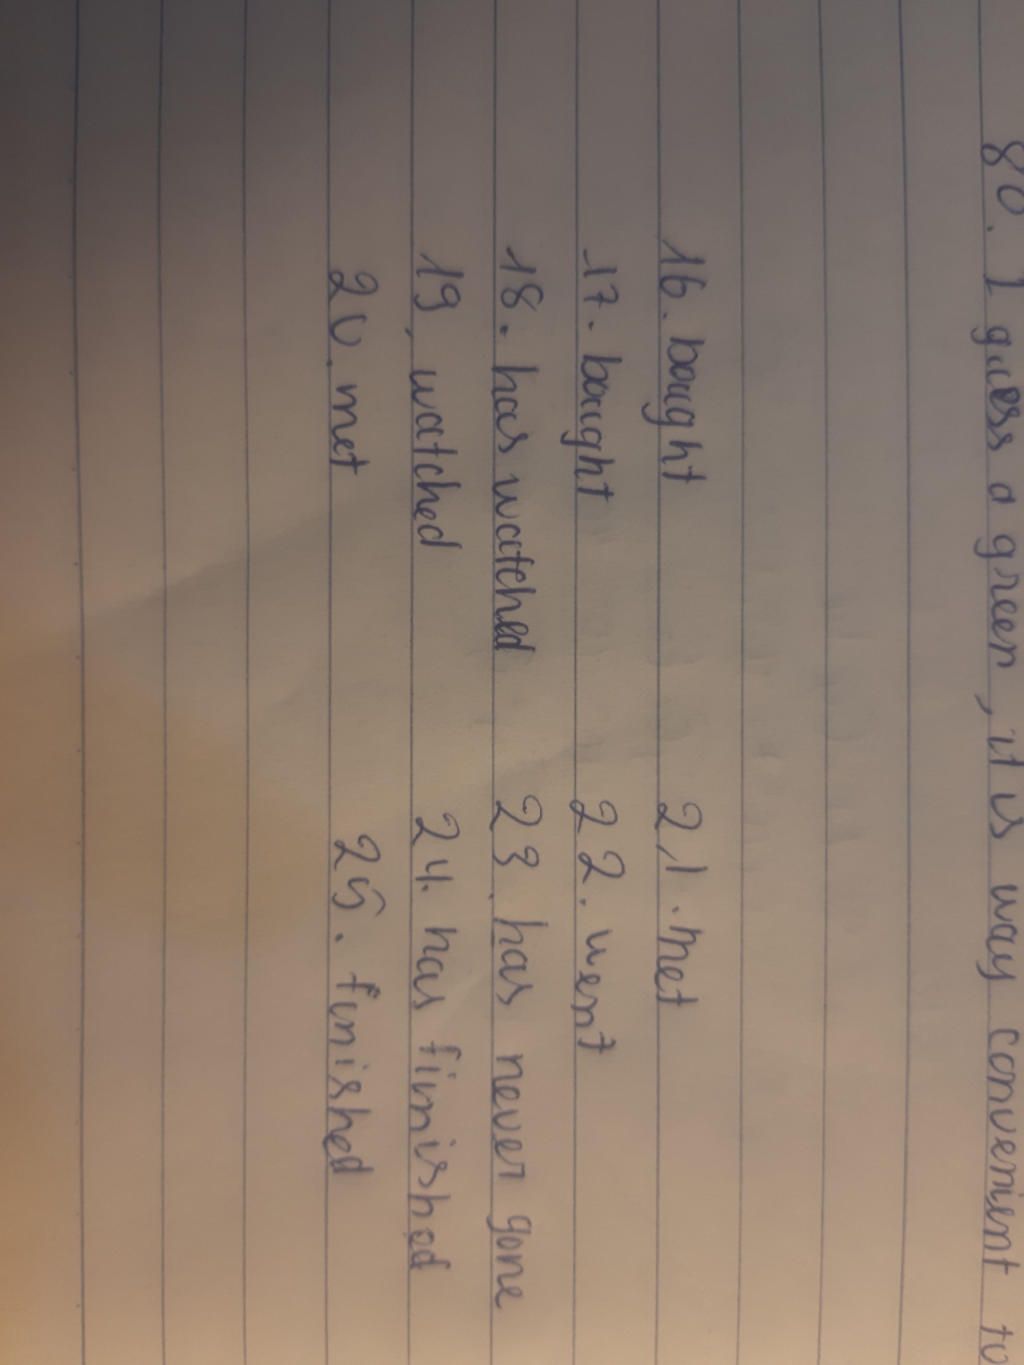 80. I guess a green, it is way convenient to
16. bought
17. bought
18. has watched
19. watched
20. met
21. met
22. went
23. has never gone
24. has finished
25. finished